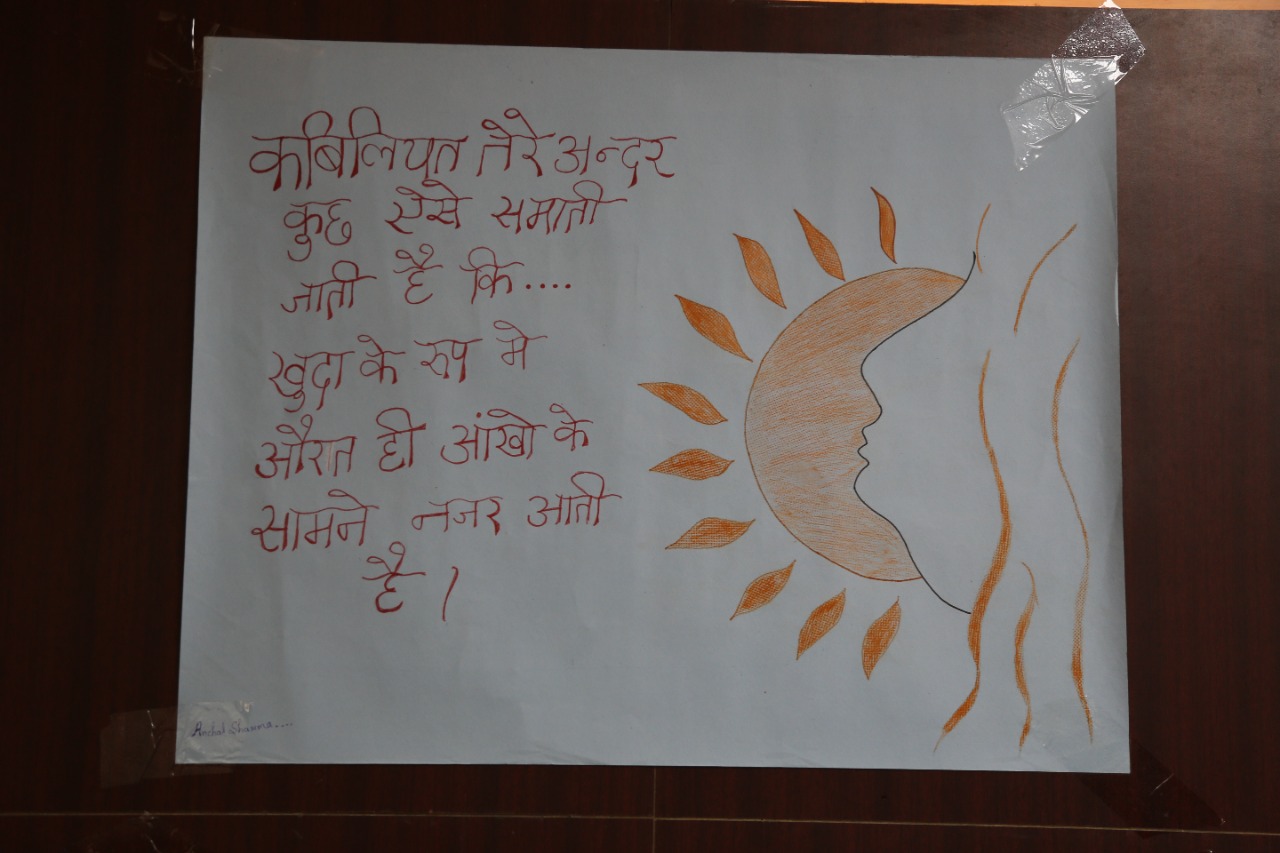 कबिलियत तेरे अन्दर
कुछ ऐसे समाती
जाती है कि....
खुदा के रुप मे
औरत ही आंखो के
सामने नजर आती
है।
Anchal Sharma....